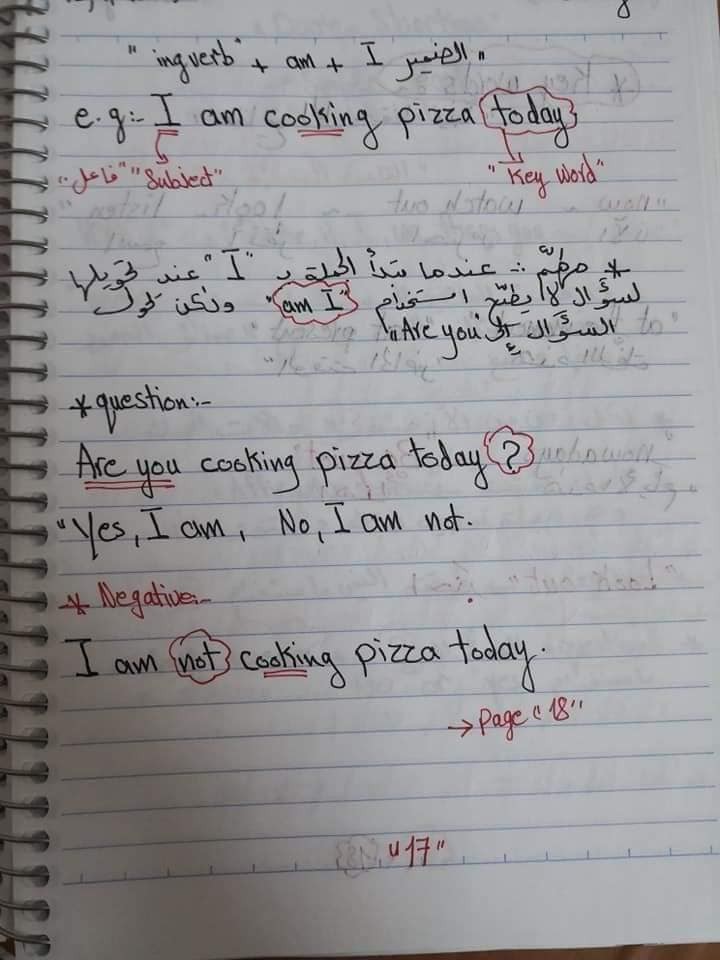 "الضمير I + am + ing verb"
e.g:- I am cooking pizza today
"فاعل" "Subject" "Key Word"
* مهمّ :- عندما تبدأ الجملة بـ "I" عند تحويلها
لسؤال لا يصّح استخدام "am I" ولكن نحول
السؤال إلى "Are you"
* question:-
Are you cooking pizza today ?
"Yes, I am, No, I am not.
* Negative:-
I am not cooking pizza today.
→ Page "18"
"17"